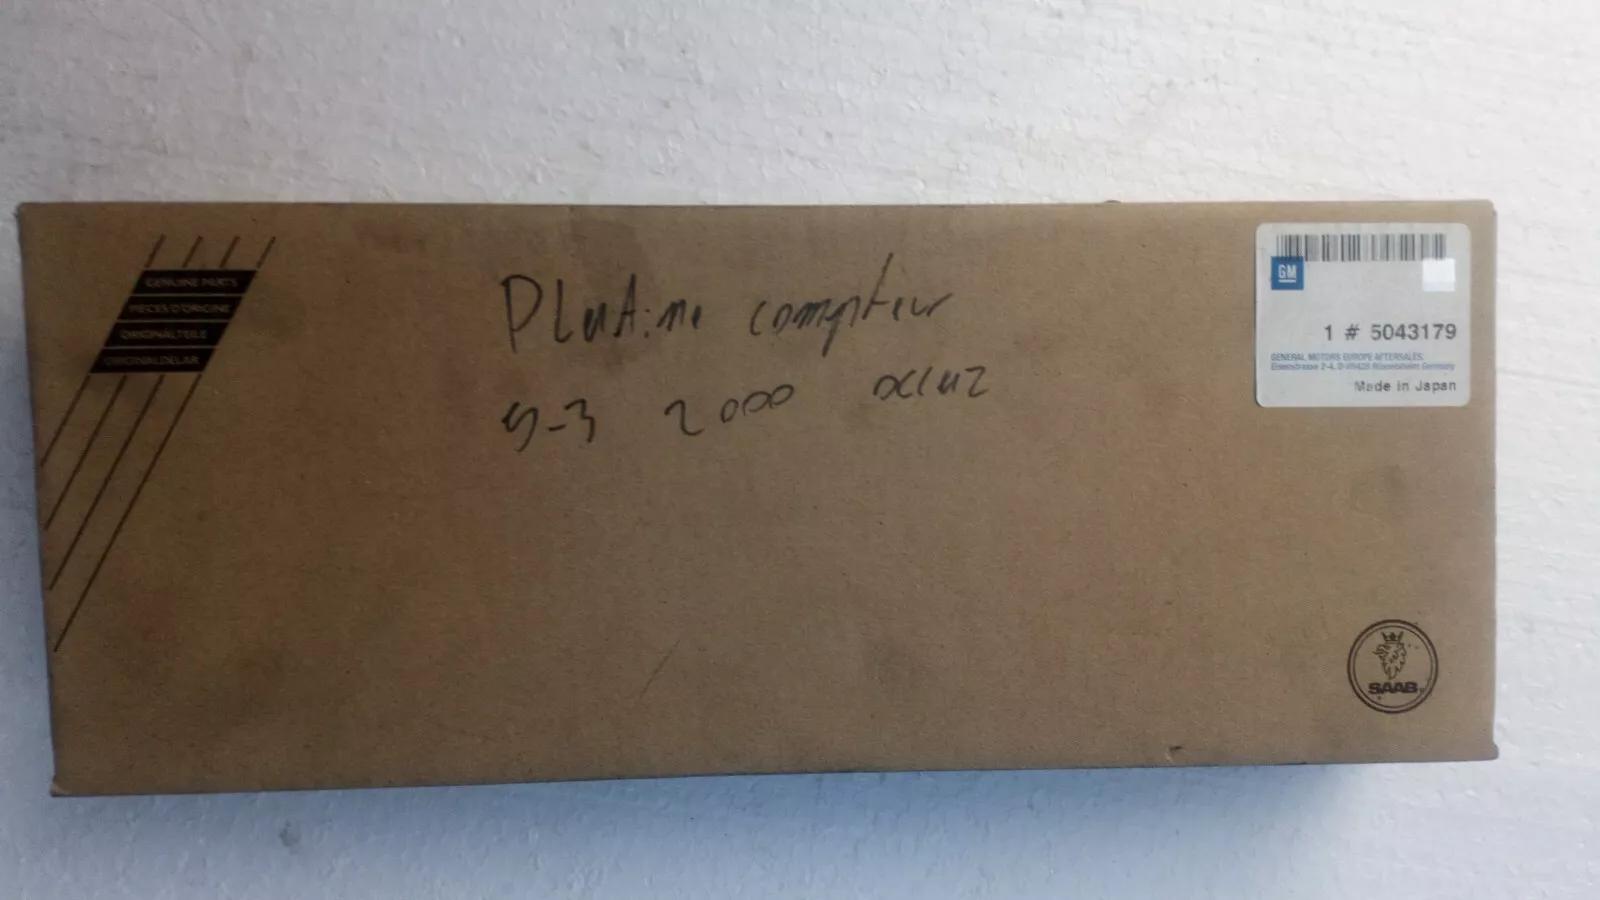 GENUINE PARTS
PIECES D'ORIGINE
ORIGINALTEILE
ORIGINALDELAR
PLUAtine compteur
9-3 2000
GM
1 # 5043179
GENERAL MOTORS EUROPE AFTERSALES
Made in Japan
SAAB